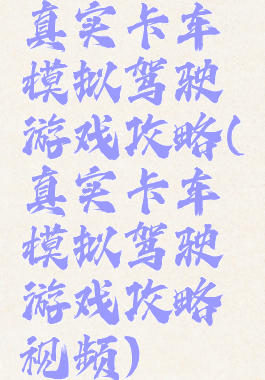 真实卡车
模拟驾驶
游戏攻略(
真实卡车
模拟驾驶
游戏攻略
视频)